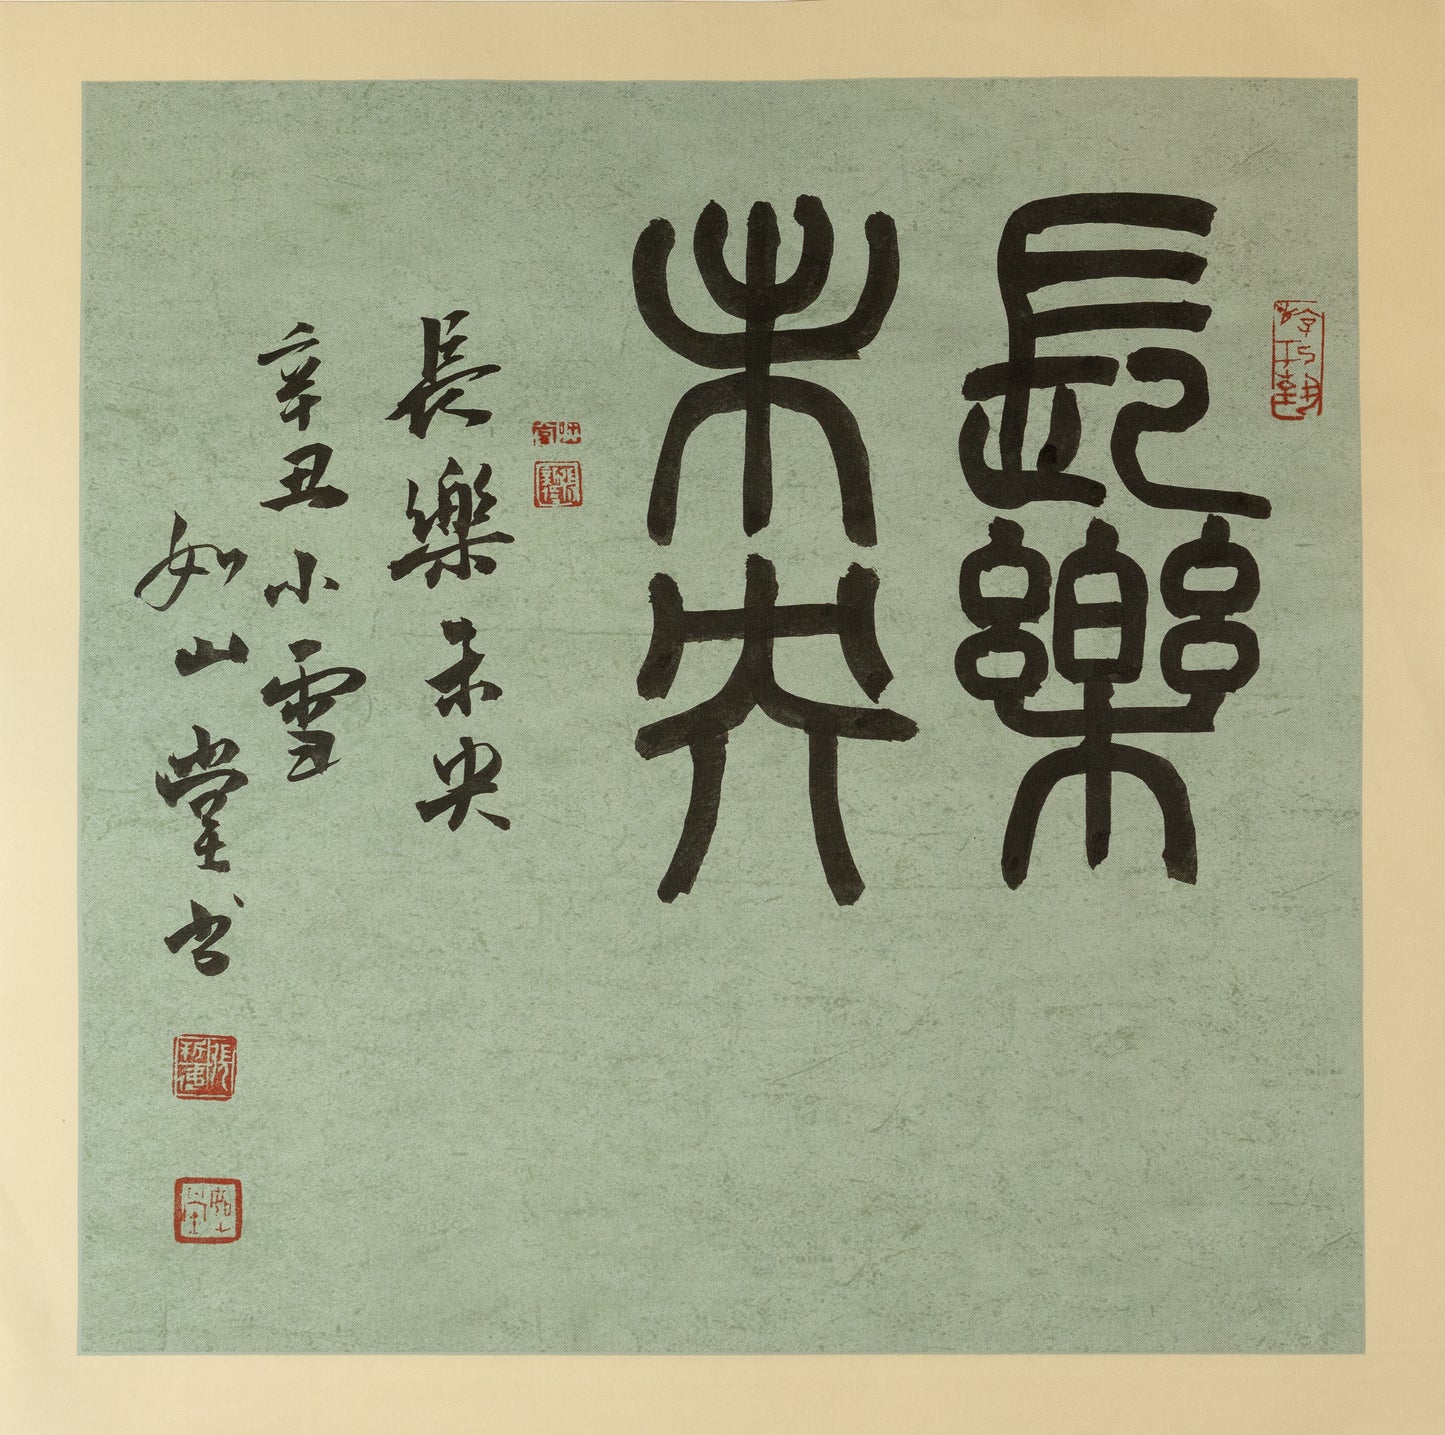 長樂
未央
長樂未央
辛丑小雪
如山堂书